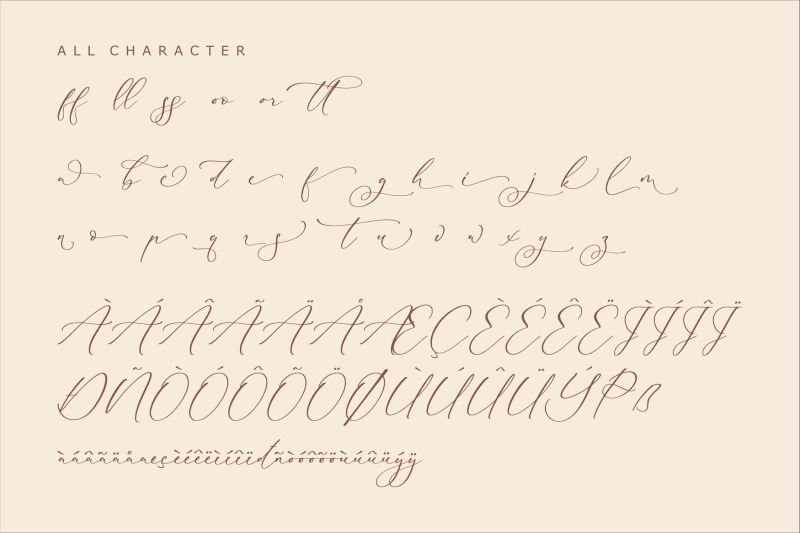 ALL CHARACTER
ff ll ss oo or tt
a b c d e f g h i j k l m
n o p q r s t u v w x y z
ÀÁÂÃÄÅÆÇÈÉÊËÌÍÎÏ
ÐÑÒÓÔÕÖØÙÚÛÜÝÞß
àáâãäåæçèéêëìíîïđñòóôõöùúûüýÿ